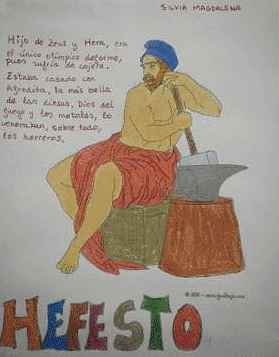 SILVIA MAGDALENA
Hijo de Zeus y Hera, era
el único olímpico deforme,
pues sufría de cojera.
Estaba casado con
Afrodita, la más bella
de las diosas. Dios del
fuego y los metales, lo
veneraban, sobre todo,
los herreros.
HEFESTO